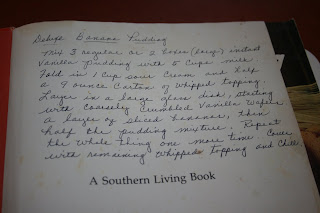 Deluxe Banana Pudding
Mix 3 regular or 2 boxes (large) instant
Vanilla pudding with 5 cups milk.
Fold in 1 cup sour cream and half
a 9 ounce carton of whipped topping.
Layer in a large glass dish, starting
with coarsely crumbled Vanilla Wafers
a layer of sliced bananas, then
half the pudding mixture. Repeat
the whole thing one more time. Cover
with remaining whipped topping and chill
A Southern Living Book